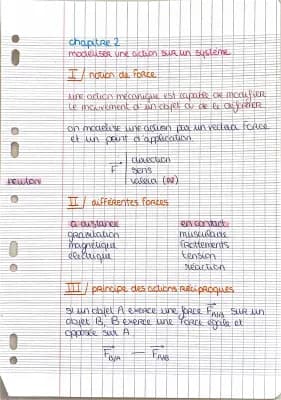 chapitre 2
modéliser une action sur un système
I / notion de force
une action mécanique est capable de modifier
le mouvement d'un objet ou de le déformer
on modélise une action par un vecteur force
et un point d'application.
F⃗ | direction
sens
valeur (N)
newton
II / différentes forces
à distance
gravitation
magnétique
électrique
en contact
musculaire
frottements
tension
réaction
III / principe des actions réciproques
si un objet A exerce une force F⃗A/B sur un
objet B, B exerce une force égale et
opposée sur A.
F⃗B/A — F⃗A/B